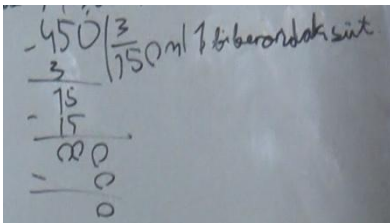 -450 | 3
3 | 150 ml 1 biberondaki süt
15
- 15
00 0
- 0
0